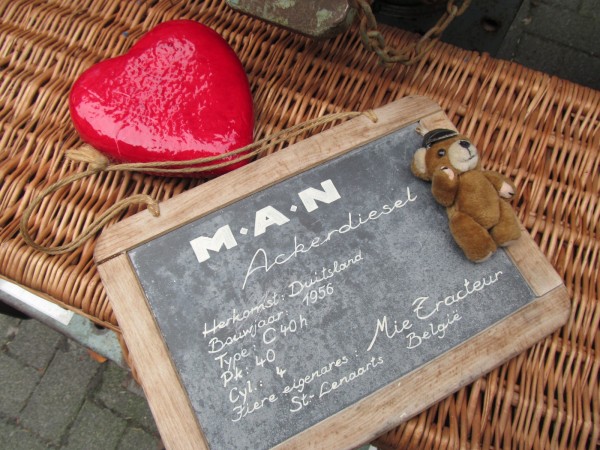 M·A·N
Ackerdiesel
Herkomst: Duitsland
Bouwjaar: 1956
Type: C 40 h
Pk: 40
Cyl.: 4
Fiere eigenares: Mie Tracteur
St-Lenaarts België